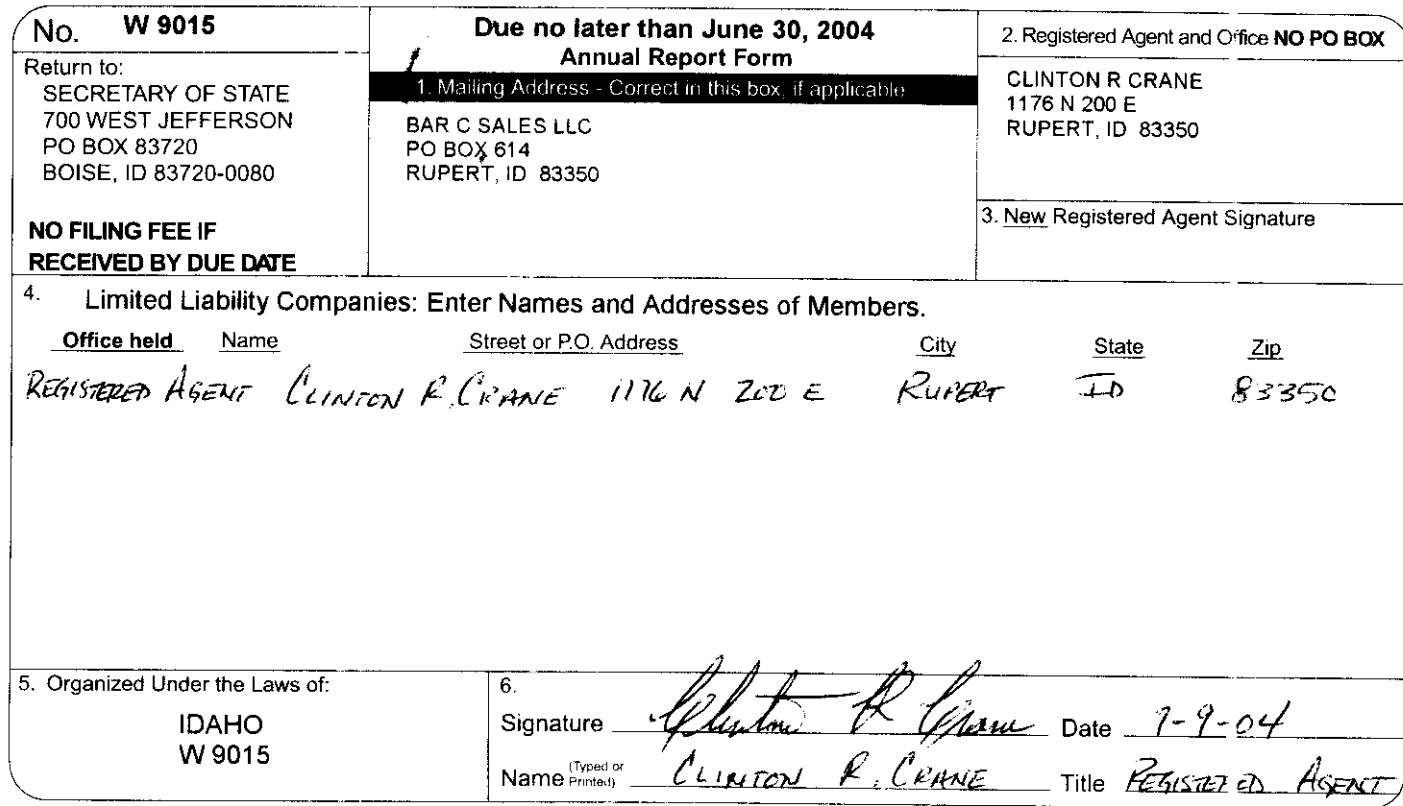 No. W 9015
Return to:
SECRETARY OF STATE
700 WEST JEFFERSON
PO BOX 83720
BOISE, ID 83720-0080
NO FILING FEE IF
RECEIVED BY DUE DATE
Due no later than June 30, 2004
Annual Report Form
1. Mailing Address - Correct in this box, if applicable
BAR C SALES LLC
PO BOX 614
RUPERT, ID 83350
2. Registered Agent and Office NO PO BOX
CLINTON R CRANE
1176 N 200 E
RUPERT, ID 83350
3. New Registered Agent Signature
4. Limited Liability Companies: Enter Names and Addresses of Members.
Office held Name Street or P.O. Address City State Zip
REGISTERED AGENT CLINTON R. CRANE 1176 N 200 E RUPERT ID 83350
5. Organized Under the Laws of:
IDAHO
W 9015
6.
Signature Clinton R Crane Date 7-9-04
Name (Typed or Printed) CLINTON R. CRANE Title REGISTERED AGENT